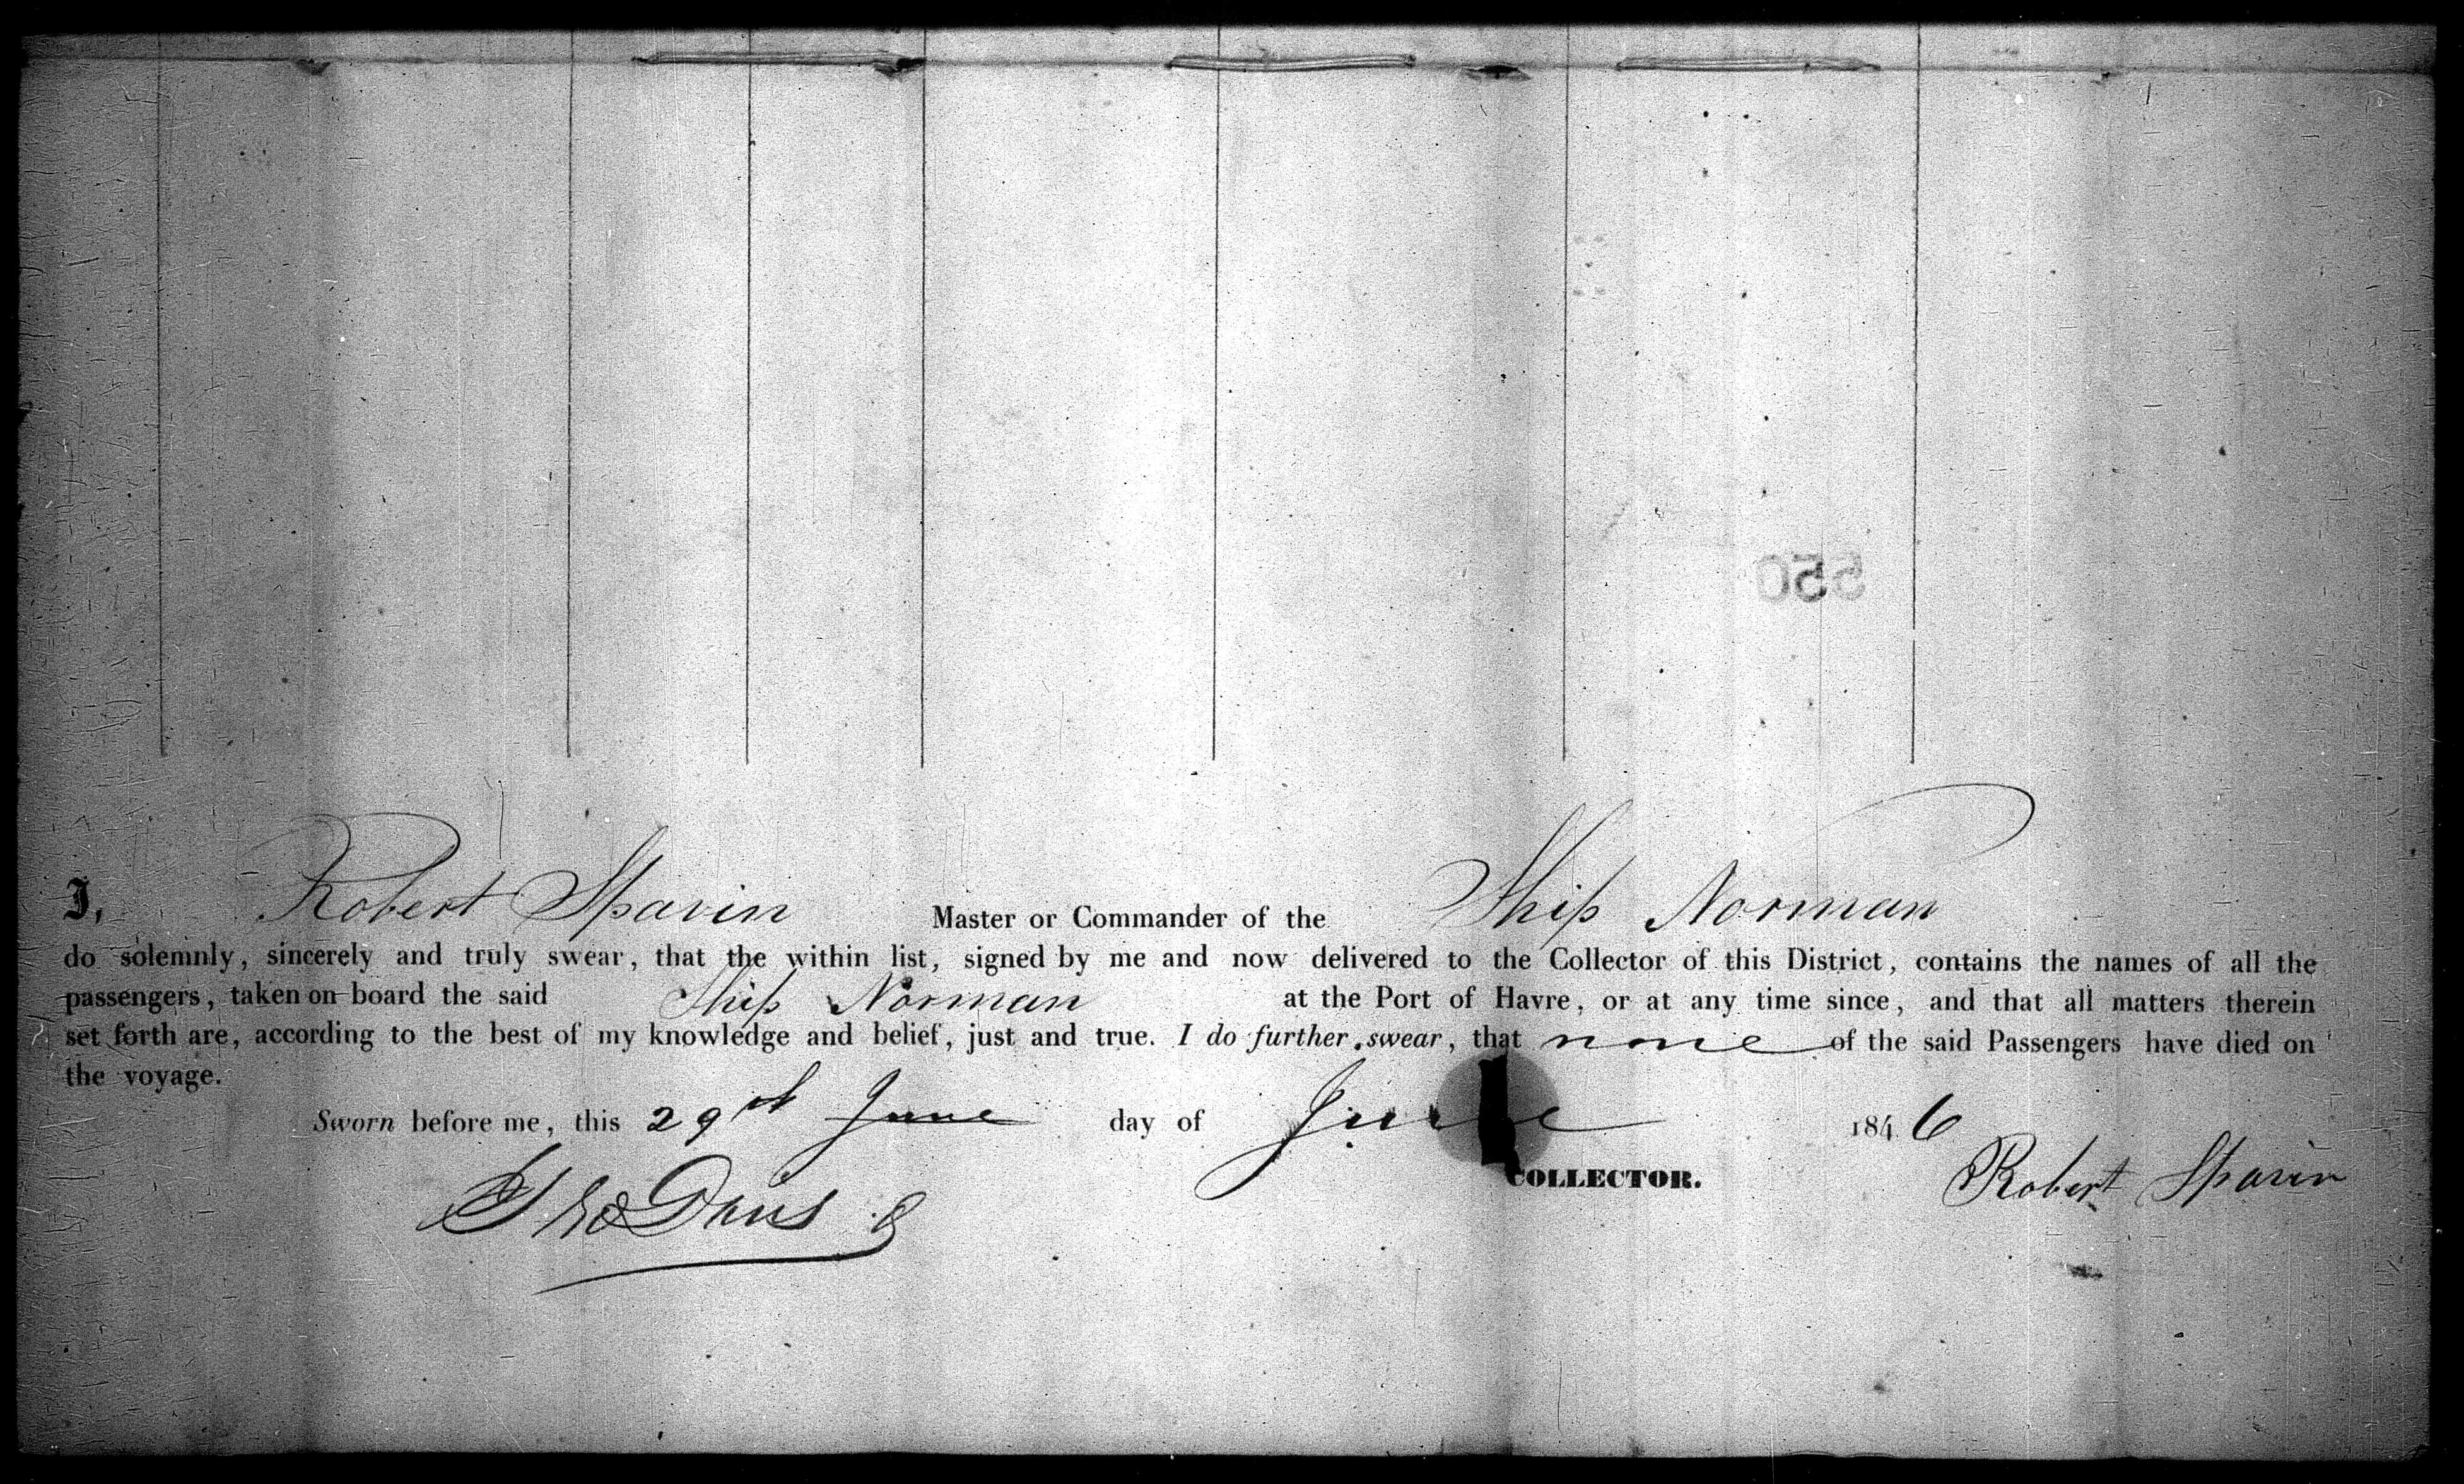 550
I, Robert Spavin Master or Commander of the Ship Norman
do solemnly, sincerely and truly swear, that the within list, signed by me and now delivered to the Collector of this District, contains the names of all the
passengers, taken on board the said Ship Norman at the Port of Havre, or at any time since, and that all matters therein
set forth are, according to the best of my knowledge and belief, just and true. I do further swear, that none of the said Passengers have died on
the voyage.
Sworn before me, this 29th June day of June 1846
COLLECTOR. Robert Spavin